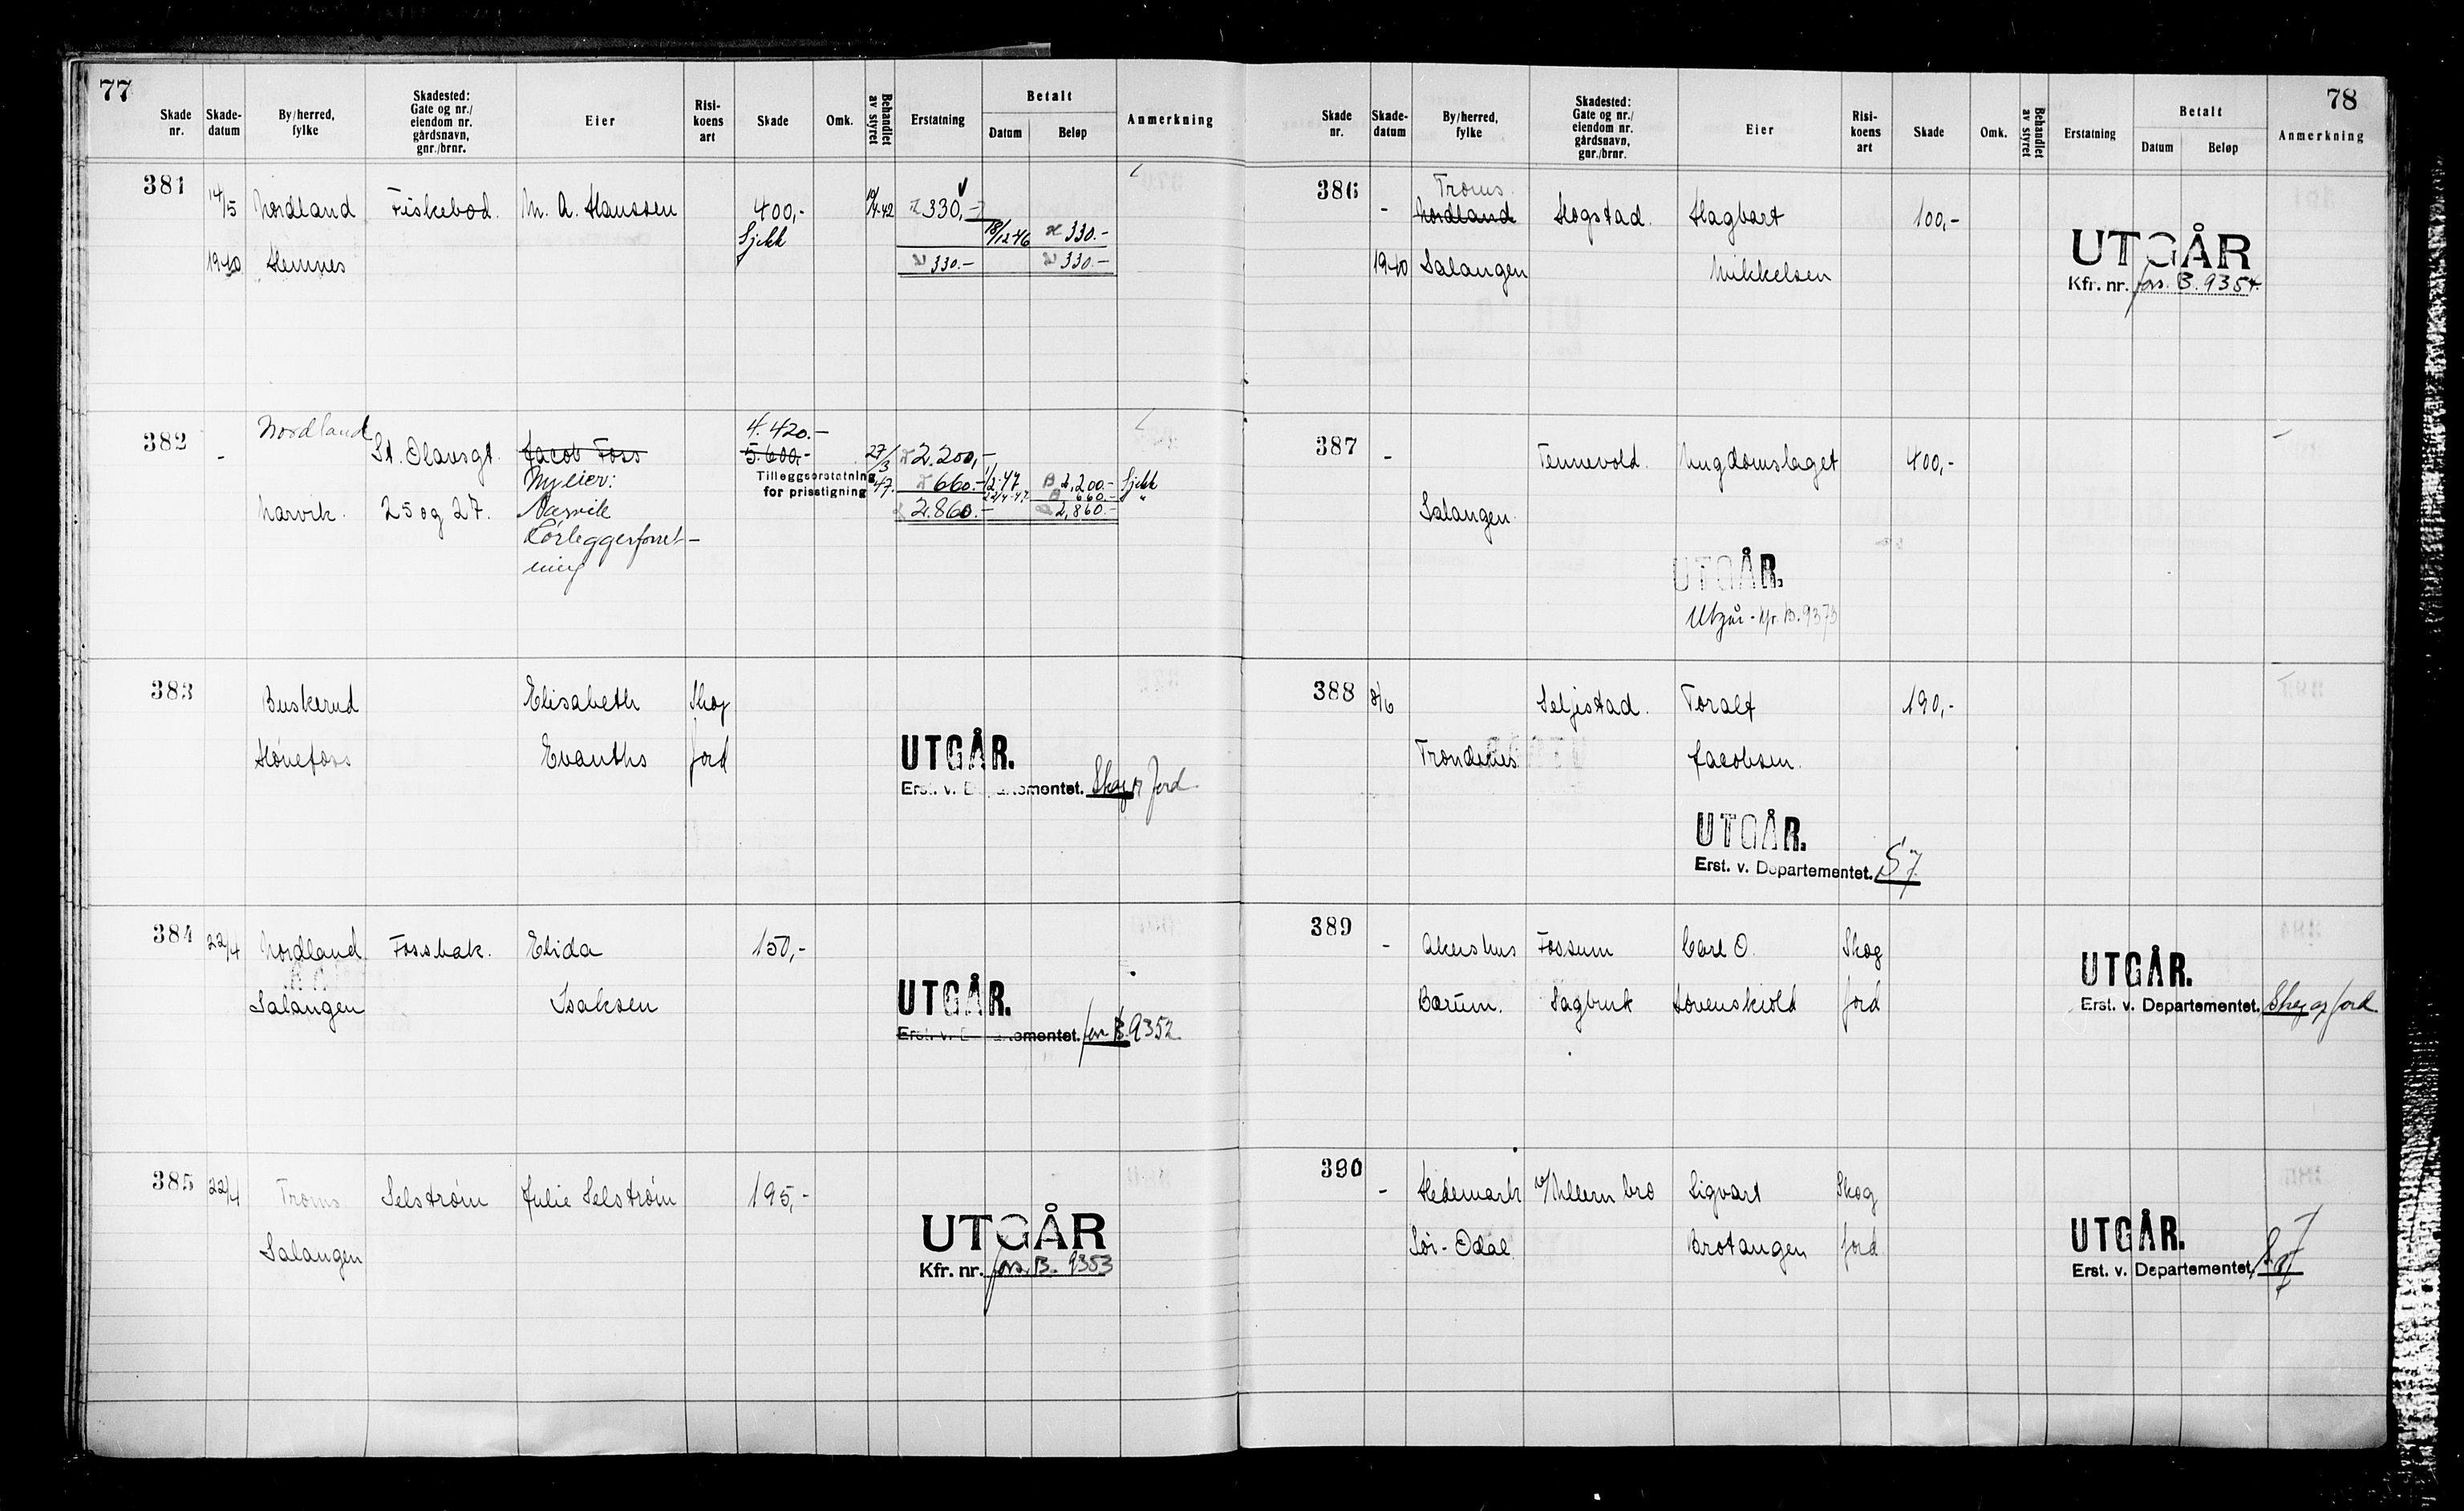 77
Skade nr. Skade-datum By/herred, fylke Skadested: Gate og nr./ eiendom nr. gårdsnavn, gnr./brnr. Eier Risi-koens art Skade Omk. Behandlet av styret Erstatning Betalt Datum Beløp Anmerkning
381 14/5 Nordland Fiskebød. M. A. Hanssen 400,- 10/4-42 330,-
Sjekk 18/12 46 330.-
1940 Hemnes 330.- 330.-
382 - Nordland 4.420.-
St. Olavsgt. Jacob Foss 5.600,- 27/3 47. 2.200,-
Ny eier: Tilleggserstatning for prisstigning 660.- 1/2-47 2.200.- Sjekk
22/4-47 660.- "
Narvik. 25 og 27. Narvik 2.860.- 2,860.-
Rørleggerforret-
ning
383 Buskerud Elisabeth Skog
Hønefoss Evanths jord
UTGÅR.
Erst. v. Departementet. Skog og jord.
384 22/4 Nordland Fossbak. Elida 150,-
Salangen Isaksen
UTGÅR.
Erst. v. Departementet. fors B. 9352.
385 22/4 Troms Selstrøm Julie Selstrøm 195,-
Salangen
UTGÅR
Kfr. nr. fors. B. 9353
78
Skade nr. Skade-datum By/herred, fylke Skadested: Gate og nr./ eiendom nr. gårdsnavn, gnr./brnr. Eier Risi-koens art Skade Omk. Behandlet av styret Erstatning Betalt Datum Beløp Anmerkning
386 Troms.
- Nordland Høgstad. Hagbart 100,-
1940 Salangen Mikkelsen
UTGÅR
Kfr. nr. fors. B. 9354.
387 - Tennevold. Ungdomslaget 400,-
Salangen.
UTGÅR.
Utgår - kfr. B. 9373
388 8/6 Seljestad. Toralf 190,-
Trondenes Jacobsen.
UTGÅR.
Erst. v. Departementet. S7
389 - Akershus Fossum Carl O. Skog
Bærum. Sagbruk Løvenskiold jord
UTGÅR.
Erst. v. Departementet. Skog og jord.
390 - Hedemark v/Ullern bro Sigvart Skog
Sør-Odal Brotangen jord
UTGÅR.
Erst. v. Departementet.